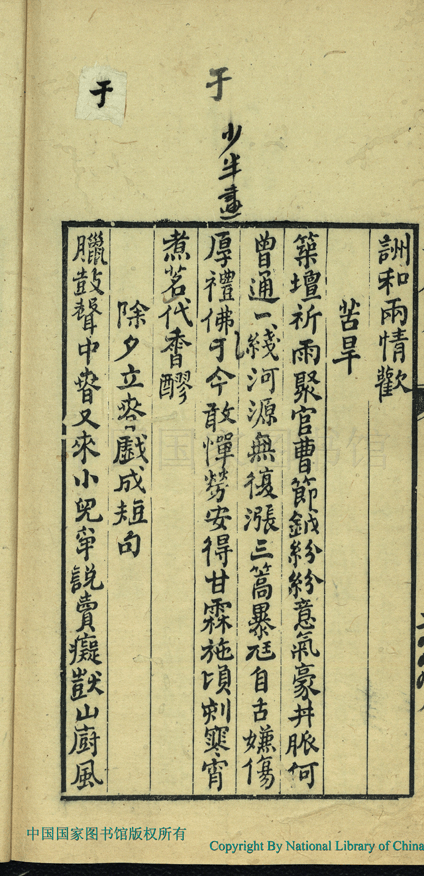 詶和兩情歡
苦旱
築壇祈雨聚官曹節鉞紛紛意氣豪井脈何
曾通一綫河源無復漲三篙暴尫自古嫌傷
厚禮佛于今敢憚勞安得甘霖施頃刻寒宵
煮茗代香醪
除夕立春戲成短句
臘鼓聲中春又來小兒穽說賣癡獃山廚風
于
少半畫
于
中国国家图书馆版权所有
Copyright By National Library of China